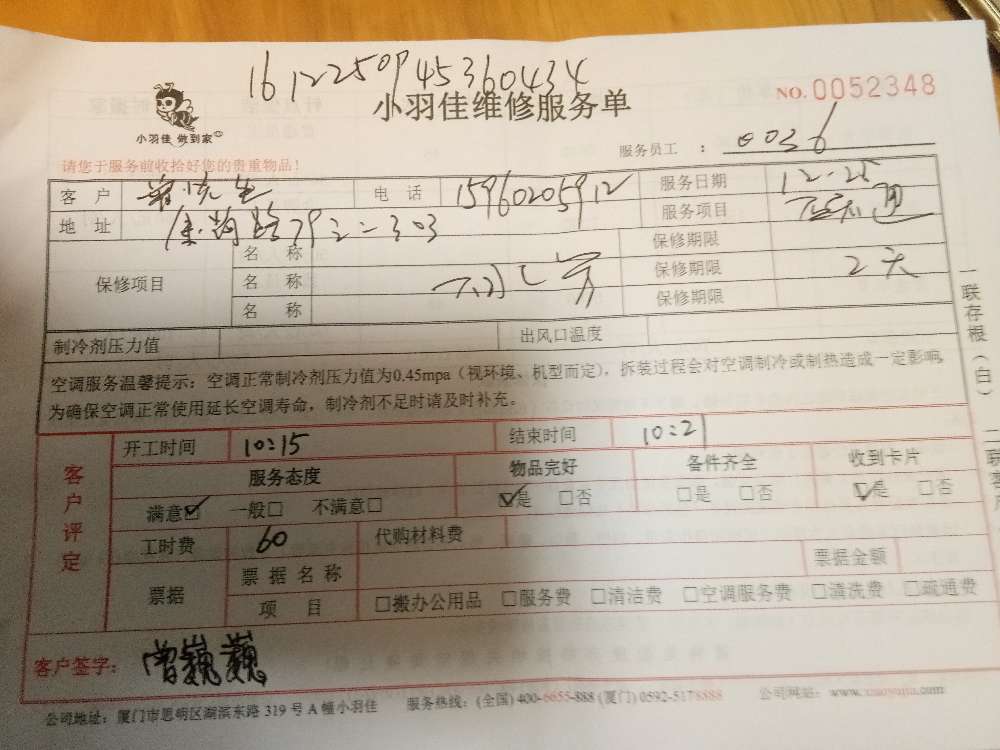 1612250945360434
小羽佳 做到家
小羽佳维修服务单
NO. 0052348
服务员工 ： 0036
请您于服务前收拾好您的贵重物品！
客 户 曾先生 电 话 15960205912 服务日期 12.25
地 址 服务项目
保修项目 名 称 保修期限
名 称 保修期限 2天
名 称 保修期限
制冷剂压力值 出风口温度
空调服务温馨提示：空调正常制冷剂压力值为0.45mpa（视环境、机型而定），拆装过程会对空调制冷或制热造成一定影响，
为确保空调正常使用延长空调寿命，制冷剂不足时请及时补充。
客户评定
开工时间 10:15 结束时间 10:21
服务态度 物品完好 备件齐全 收到卡片
满意☑ 一般□ 不满意□ ☑是 □否 □是 □否 ☑是 □否
工时费 60 代购材料费
票据 票 据 名 称 票据金额
项 目 □搬办公用品 □服务费 □清洁费 □空调服务费 □清洗费 □疏通费
客户签字： 曾巍巍
公司地址：厦门市思明区湖滨东路 319 号 A 幢小羽佳 服务热线：(全国) 400-6655-888 (厦门) 0592-5178888 公司网站：www.xiaoyujia.com
一联存根（白）